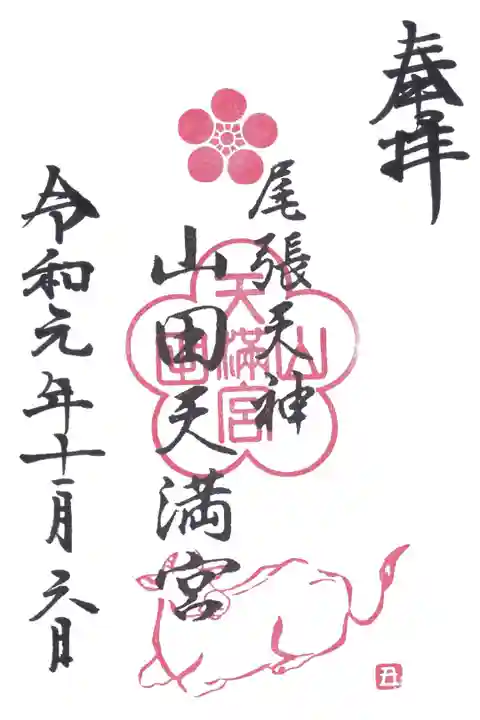 奉拝
尾張天神
山田天満宮
令和元年十一月六日
山田
天満宮
丑